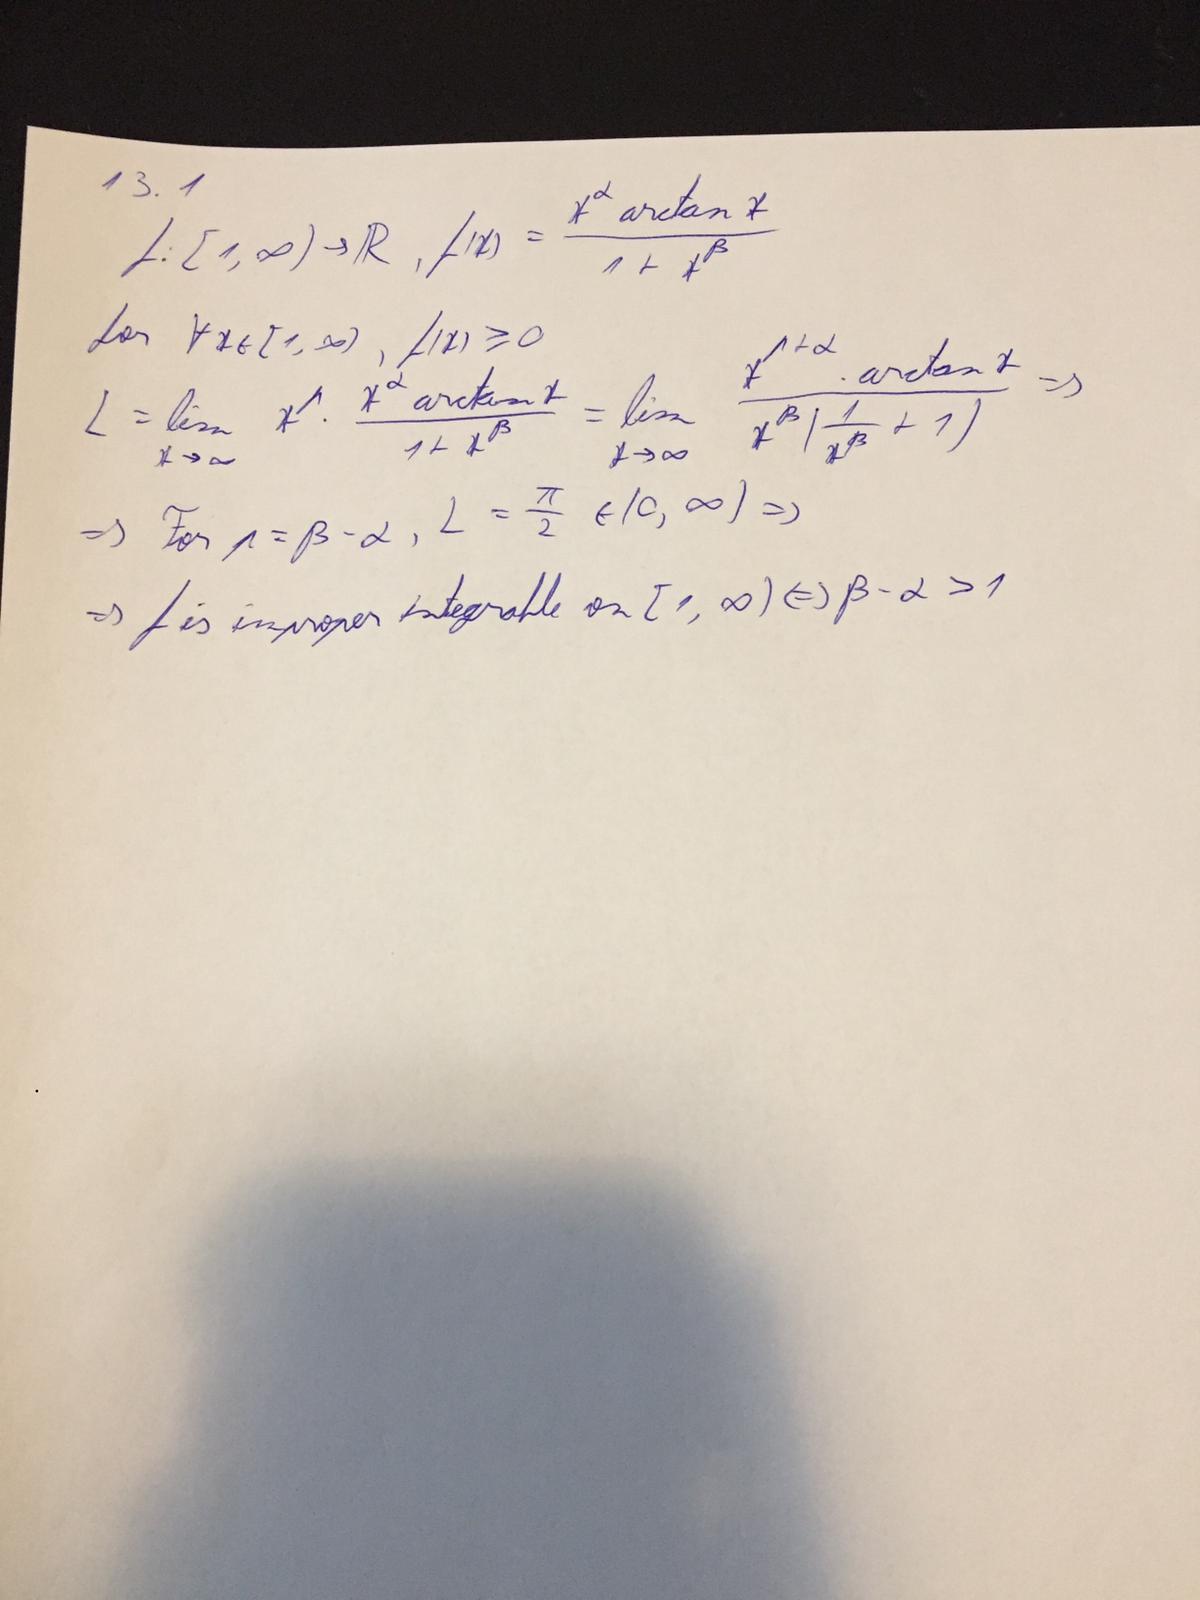 13.1
f: [1, ∞) → ℝ, f(x) = x^α arctan x / 1 + x^β
for ∀x∈[1, ∞), f(x) ≥ 0
L = lim x→∞ x^p · x^α arctan x / 1 + x^β = lim x→∞ x^(p+α) · arctan x / x^β (1/x^β + 1) ⇒
⇒ For p = β - α, L = π/2 ∈ (0, ∞) ⇒
⇒ f is improper integrable on [1, ∞) ⇔ β - α > 1